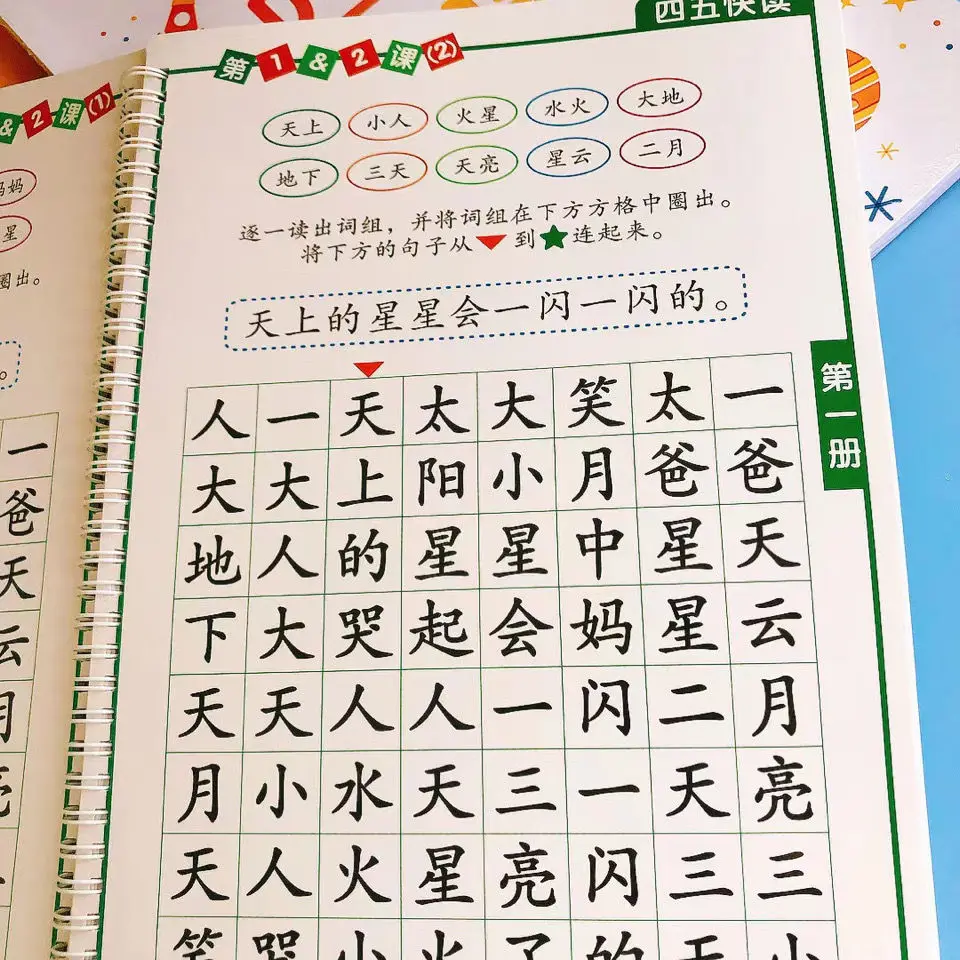 四五快读
第1&2课(2)
天上 小人 火星 水火 大地
地下 三天 天亮 星云 二月
逐一读出词组，并将词组在下方方格中圈出。
将下方的句子从 到 连起来。
天上的星星会一闪一闪的。
人一天太大笑太一
大大上阳小月爸爸
地人的星星中星天
下大哭起会妈星云
天天人人一闪二月
月小水天三一天亮
天人火星亮闪三三
笑哭小火了的天小
第一册
& 2 课(1)
妈妈
星
圈出。
。
一
爸
天
云
月
亮